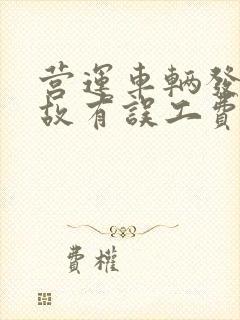 营運車輛發
故有誤工費
費權